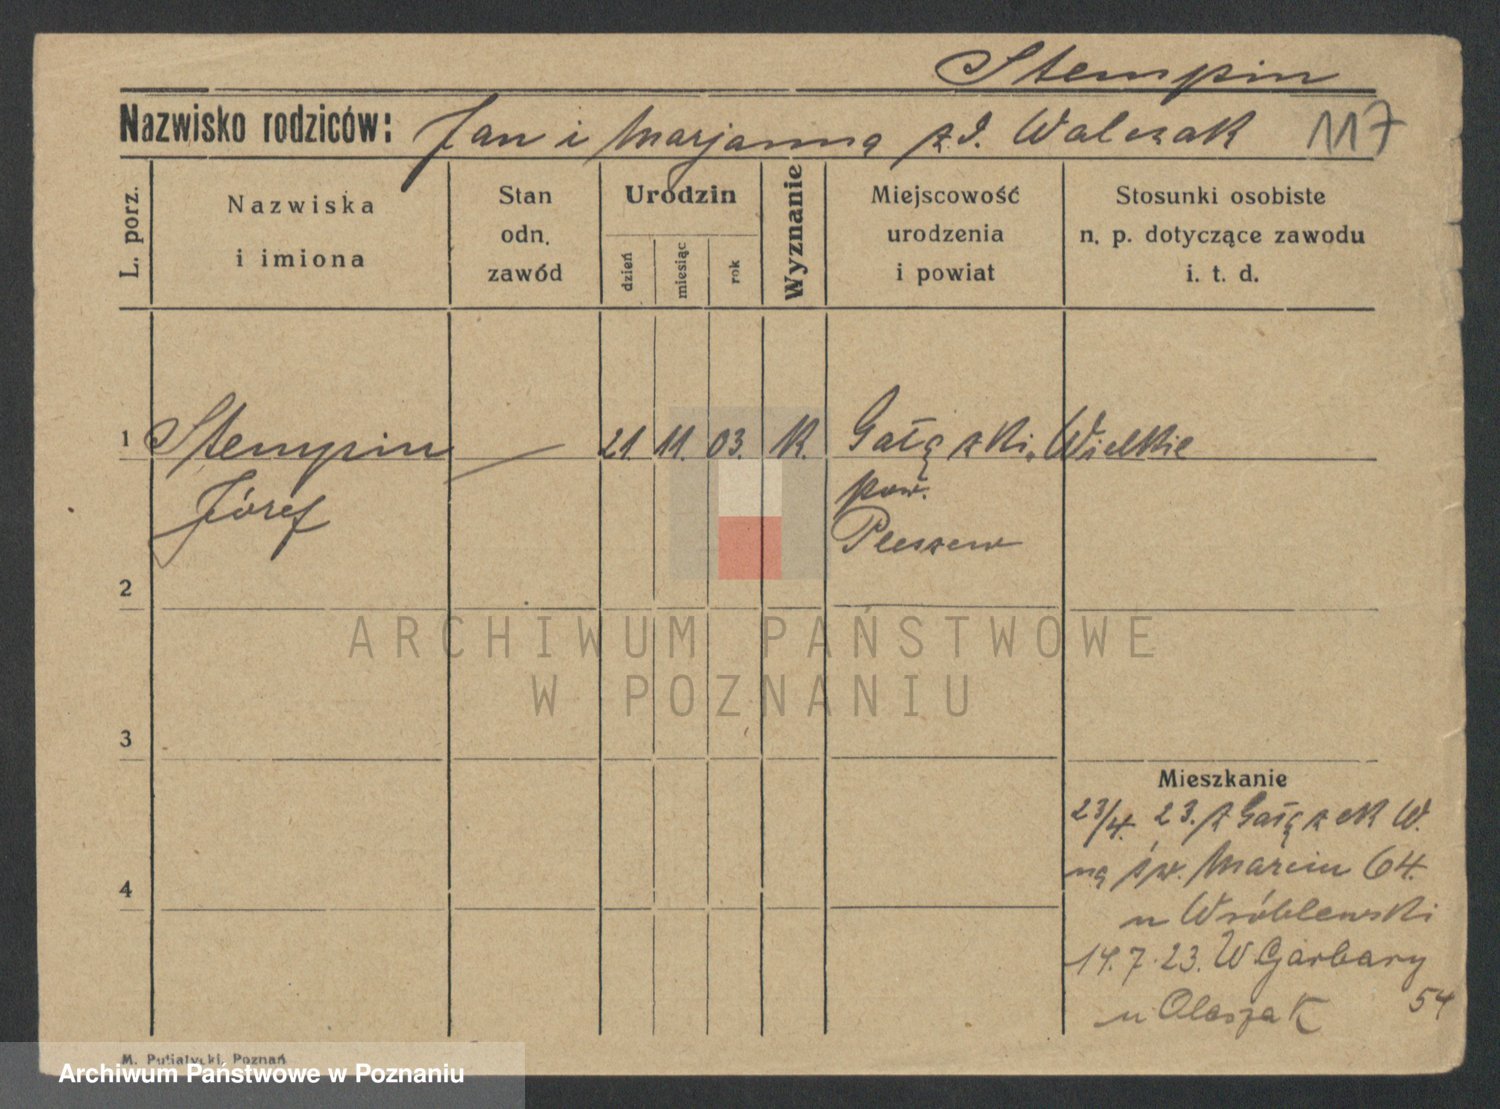 Stempin
Nazwisko rodziców: Jan i Marjanna z d. Walczak 117
L. porz.
Nazwiska
i imiona
Stan
odn.
zawód
Urodzin
dzień
miesiąc
rok
Wyznanie
Miejscowość
urodzenia
i powiat
Stosunki osobiste
n. p. dotyczące zawodu
i. t. d.
1 Stempin — 21. 11. 03. K. Gałązki Wielkie
Józef
pow.
Pleszew
2
3
4
Mieszkanie
23/4. 23. z Gałązek W.
na św. Marcin 64.
u Wróblewski
14. 7. 23. W Garbary
54
u Olaszak
M. Putiatycki, Poznań
ARCHIWUM PAŃSTWOWE
W POZNANIU
Archiwum Państwowe w Poznaniu